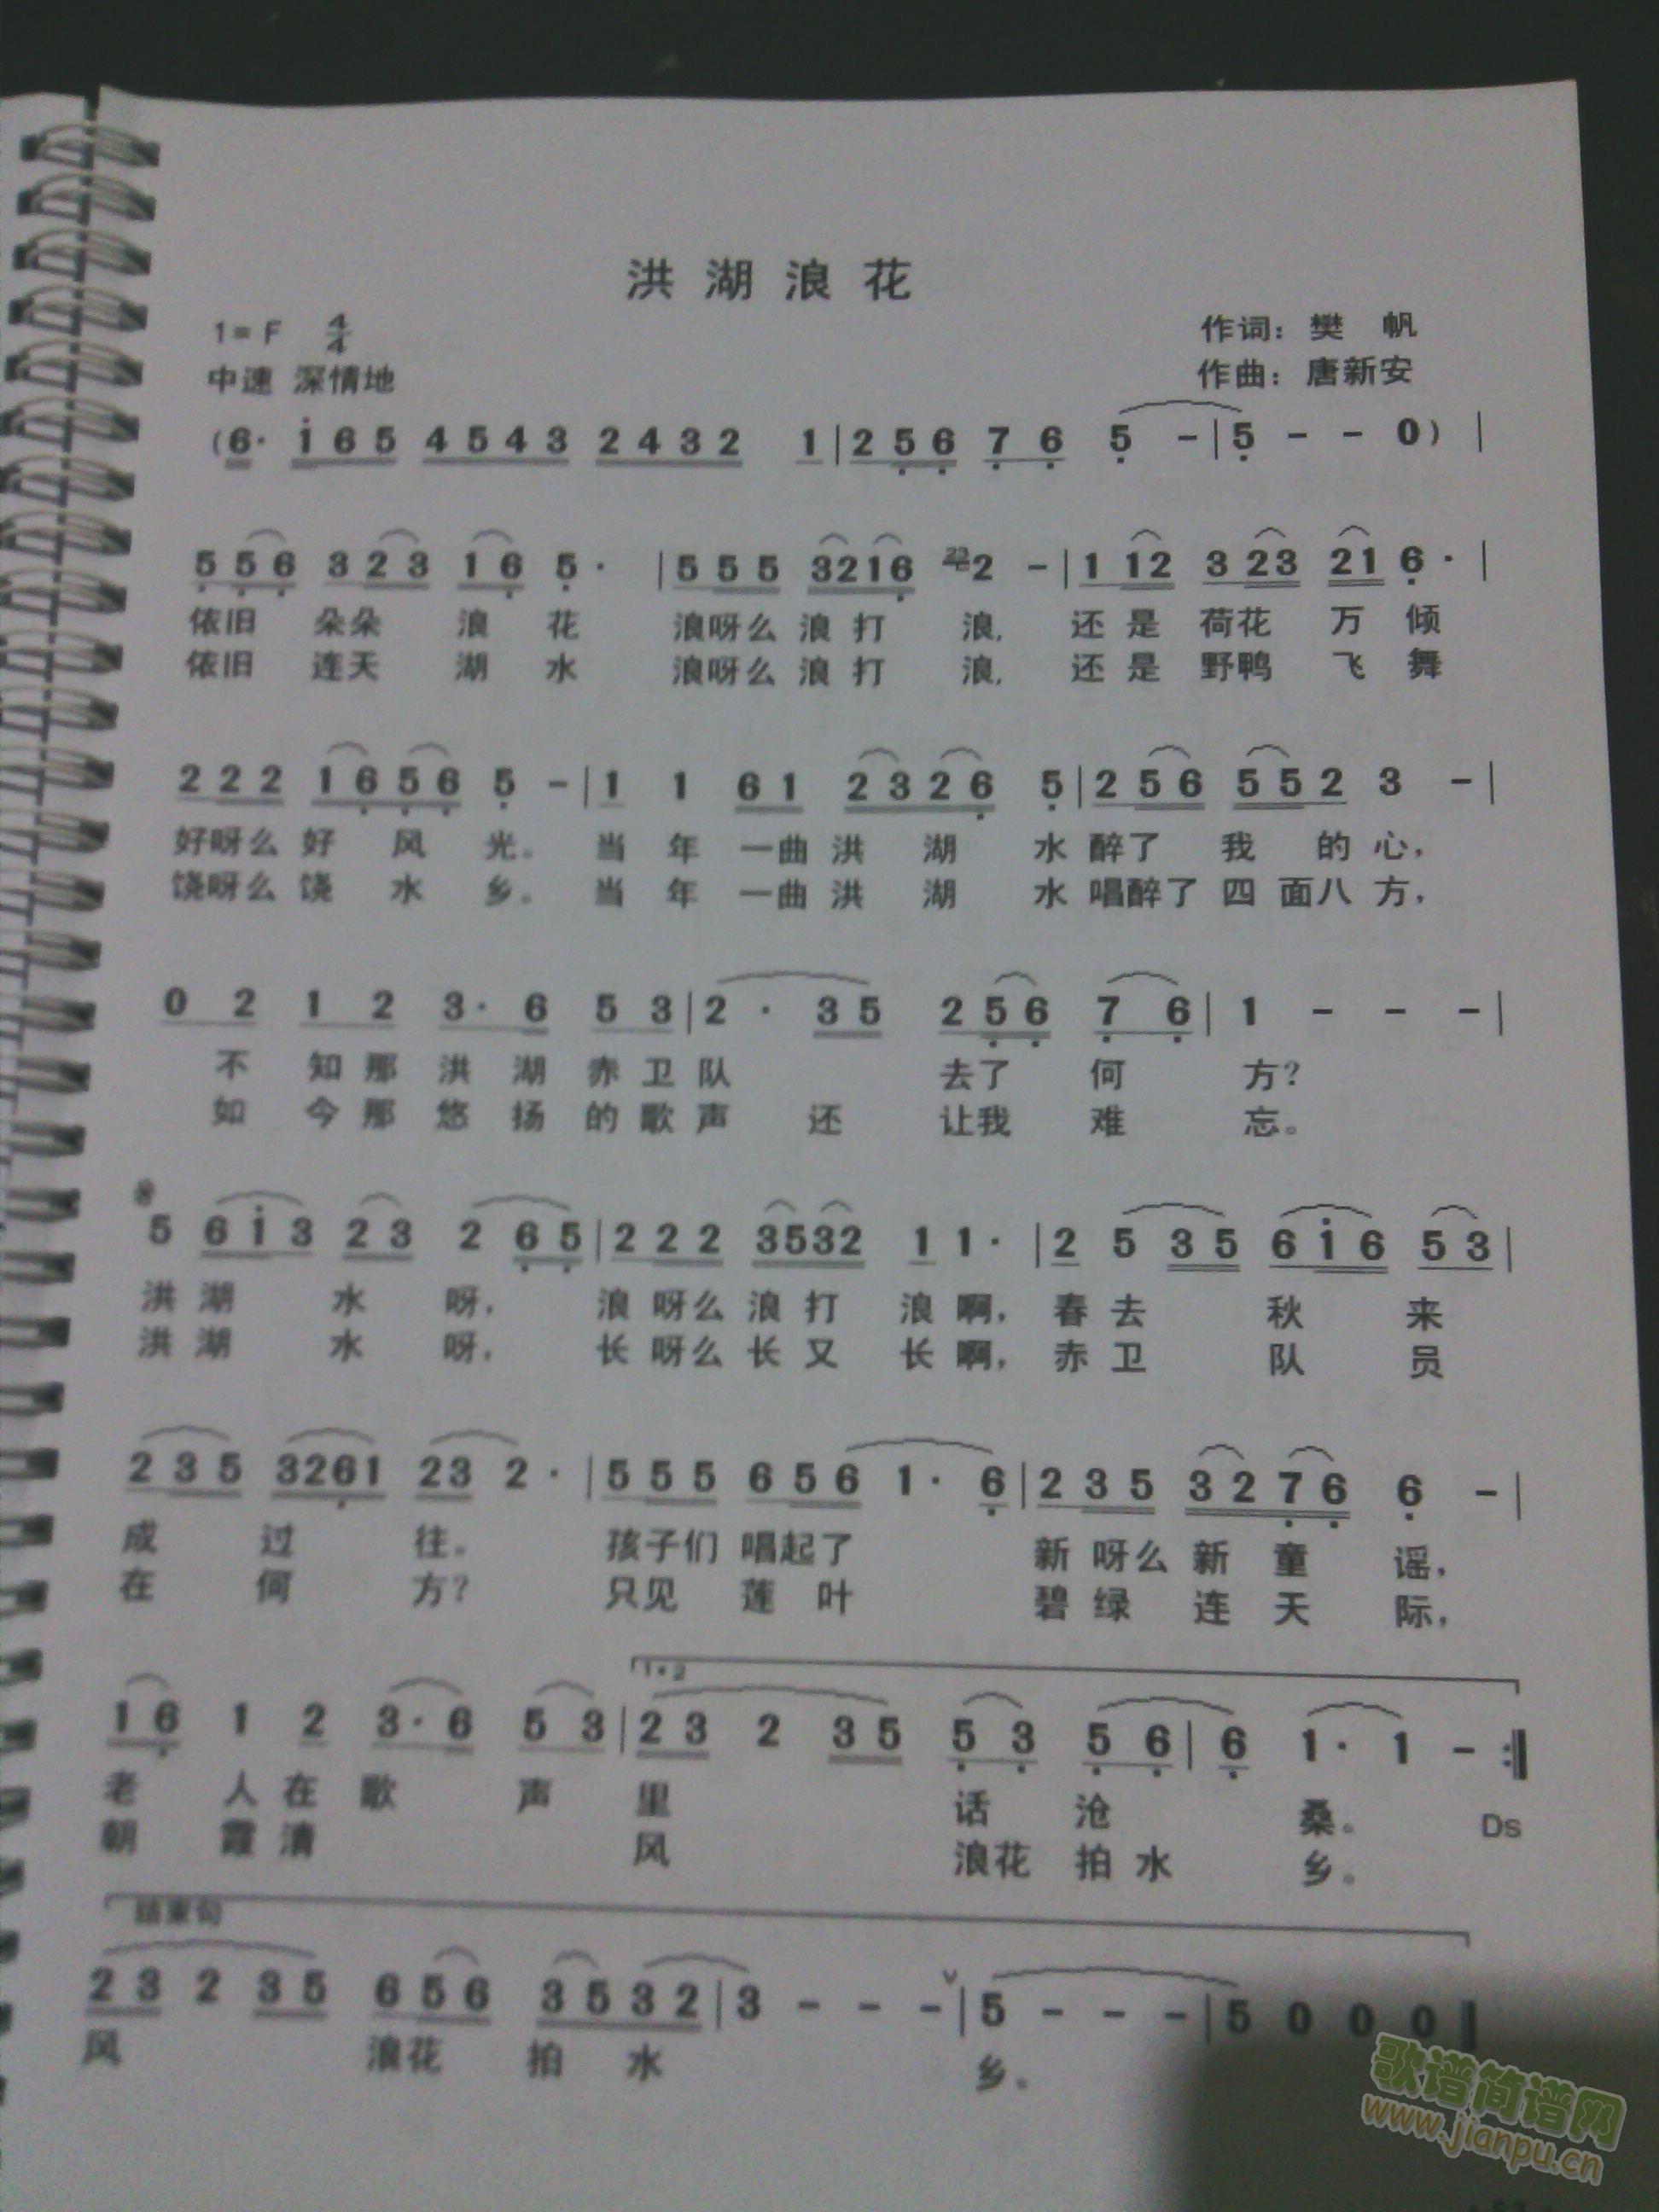 洪湖浪花
1=F 4/4
作词：樊 帆
中速 深情地
作曲：唐新安
(6· i65 4543 2432 1|256 76 5 -|5 - - 0)|
556 323 16 5· |555 3216 22 2 -|1 12 3 23 21 6·|
依旧 朵朵 浪 花 浪呀么 浪 打 浪, 还 是 荷花 万 倾
依旧 连天 湖 水 浪呀么 浪 打 浪, 还 是 野鸭 飞 舞
222 1656 5 -|1 1 61 2326 5|256 552 3 -|
好呀么 好 风 光。 当 年 一曲 洪 湖 水 醉了 我 的 心,
饶呀么 饶 水 乡。 当 年 一曲 洪 湖 水 唱醉了 四 面八 方,
0 2 1 2 3· 6 5 3|2 · 35 256 7 6| 1 - - -|
不 知 那 洪 湖 赤 卫 队 去了 何 方?
如 今 那 悠 扬 的 歌 声 还 让我 难 忘。
5 6i3 23 2 65|222 3532 1 1·|2 5 35 6i6 53|
洪 湖 水 呀, 浪 呀么 浪 打 浪 啊, 春 去 秋 来
洪 湖 水 呀, 长 呀么 长 又 长 啊, 赤 卫 队 员
235 3261 23 2·|555 656 1· 6|235 3276 6 -|
成 过 往。 孩子们 唱起了 新 呀么 新 童 谣,
在 何 方? 只见 莲 叶 碧 绿 连 天 际,
1·2
16 1 2 3·6 53|23 2 35 53 56|6 1· 1 - :‖
老 人 在 歌 声 里 话 沧 桑。 Ds
朝 霞 清 风 浪花 拍 水 乡。
结束句
23 2 35 656 3532|3 - - -|5 - - -|5 0 0 0‖
风 浪花 拍 水 乡。
歌谱简谱网
www.jianpu.cn